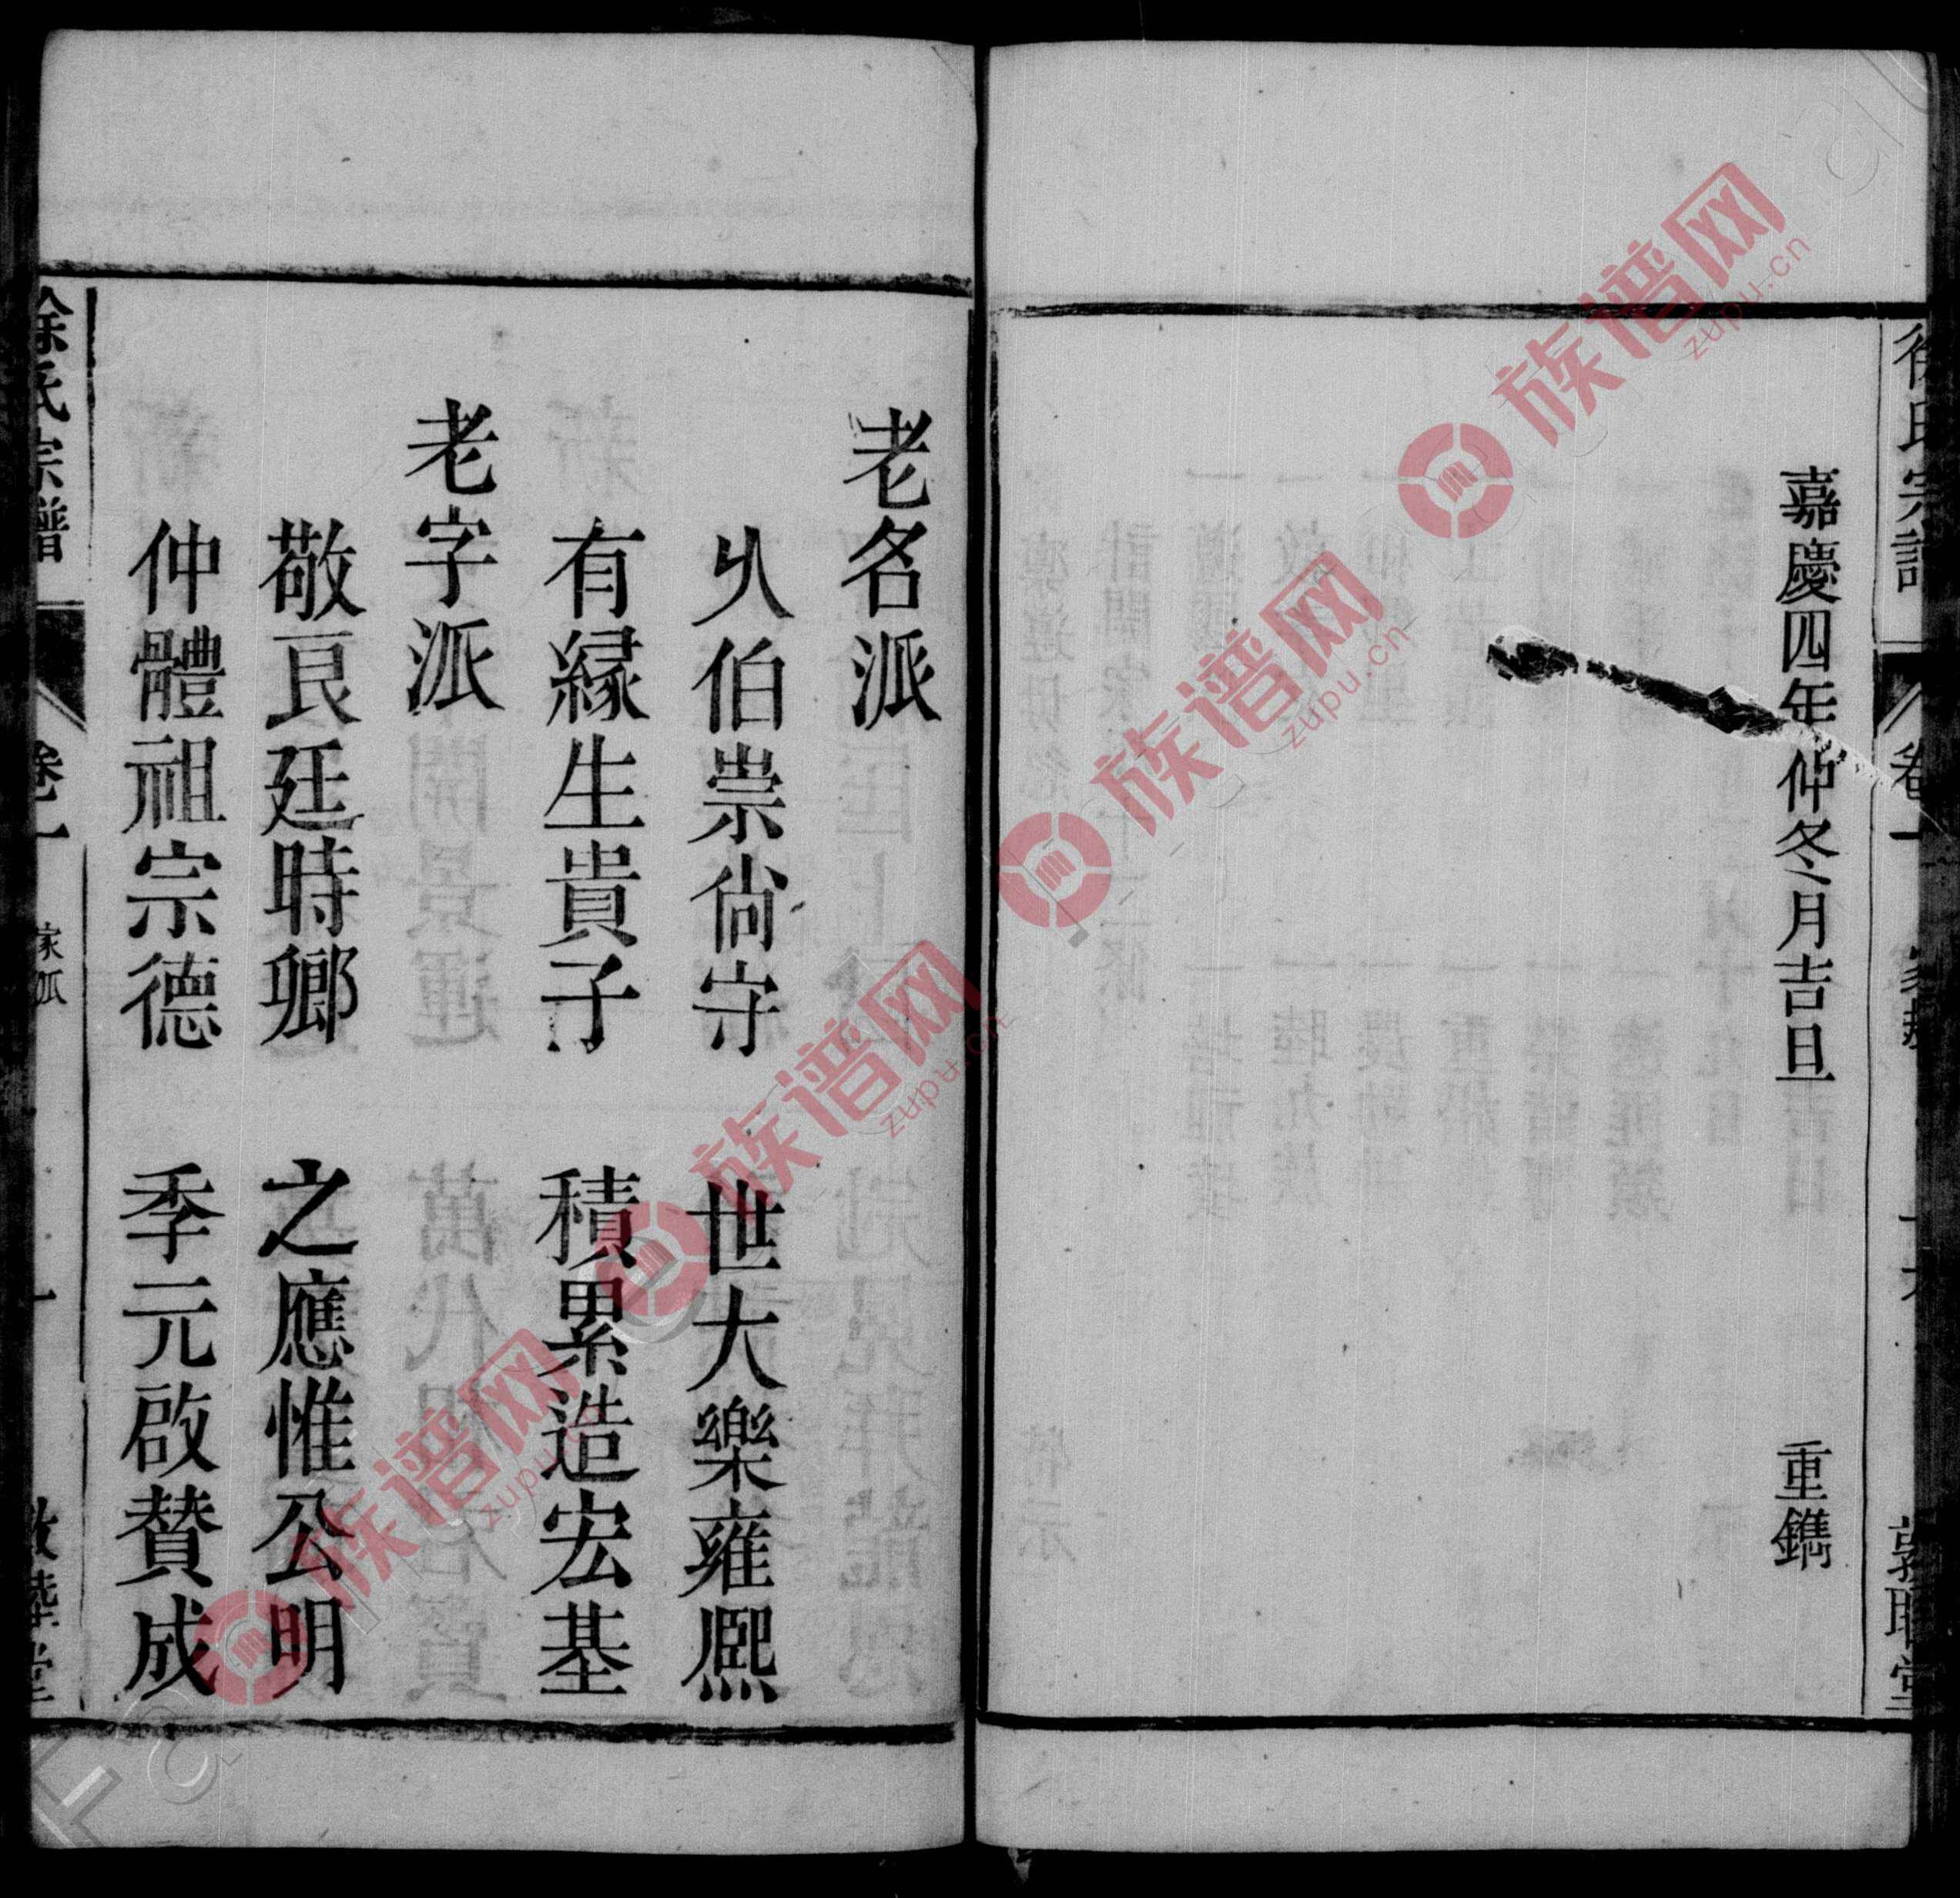 徐氏宗譜 卷一 敦睦堂
嘉慶四年仲冬月吉旦 重鐫
老名派
乆伯崇尙守 世大樂雍熙
有緣生貴子 積累造宏基
老字派
敬良廷時鄉 之應惟公明
仲體祖宗德 季元啟贊成
徐氏宗譜 卷一 家派 一 敦睦堂
族谱网 zupu.cn
族谱网 zupu.cn
族谱网 zupu.cn
族谱网 zupu.cn